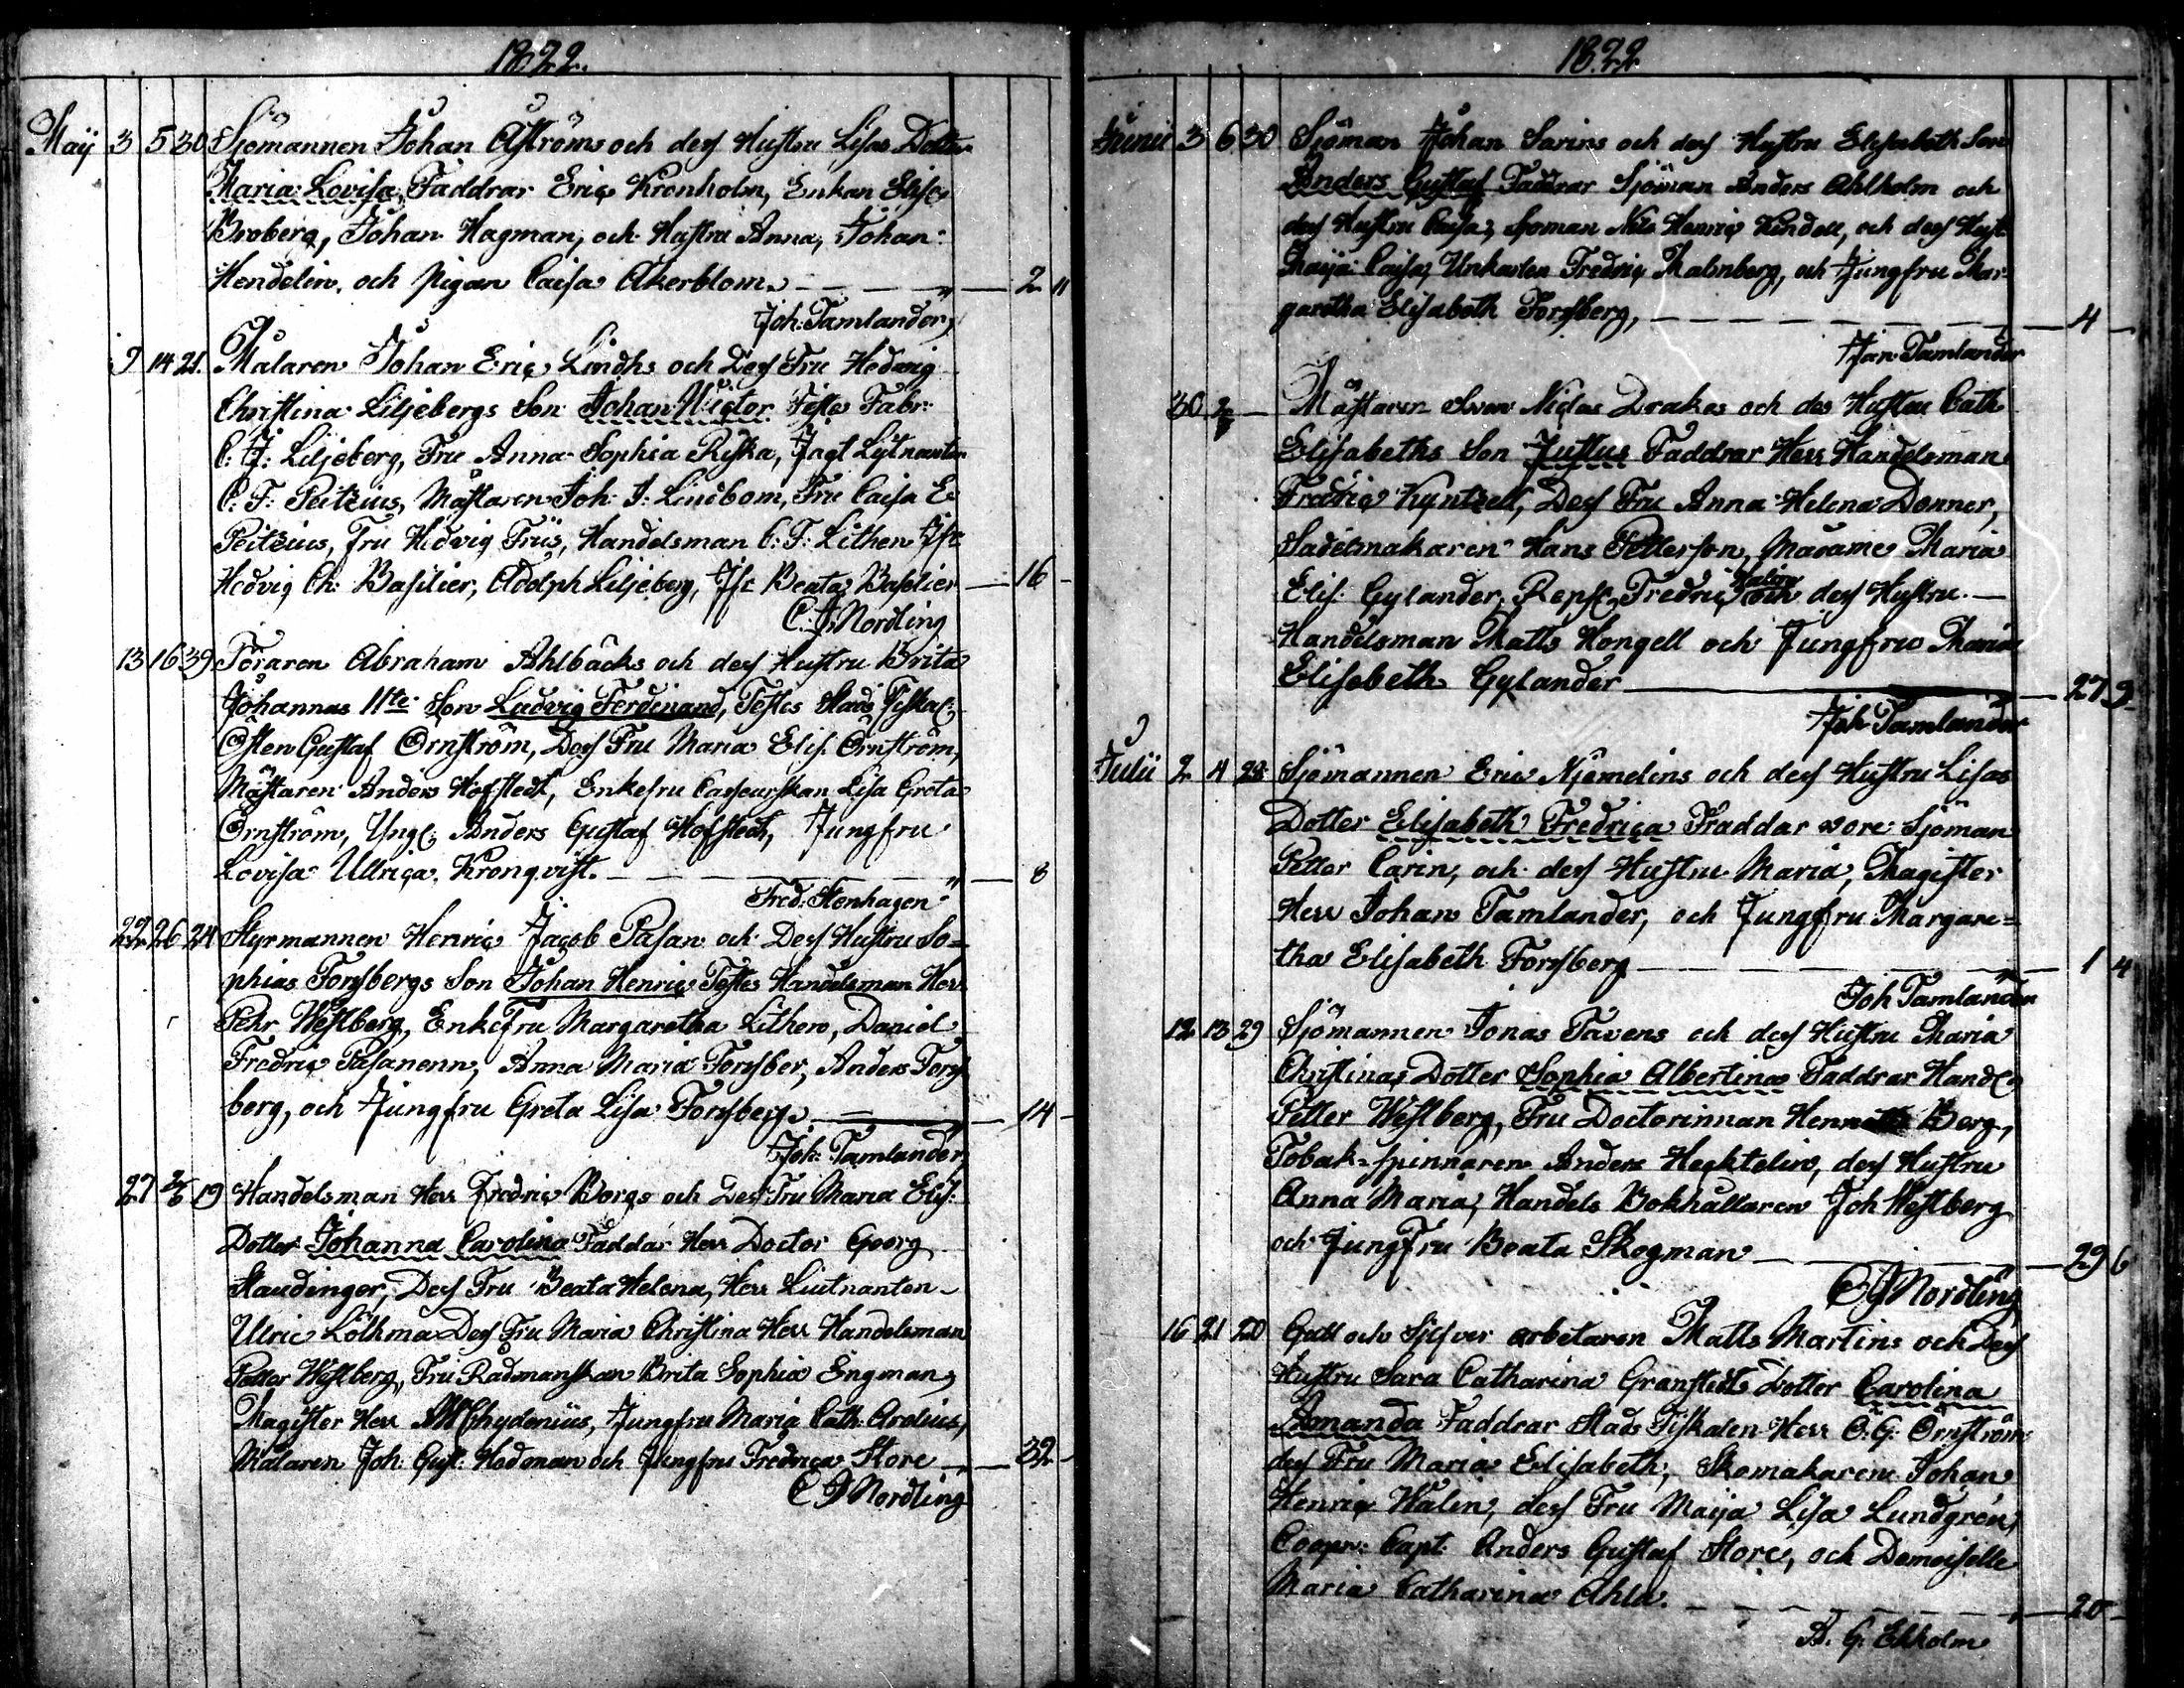 1822.
Maij 3 5 30 Sjömannen Johan Åströms och dess Hustru Lisas Dotter
Maria Lovisa, Faddrar Eric Kronholm, Enkan Elisa
Broberg, Johan Hagman, och Hustru Anna, Johan
Hendelin, och pigan Caisa Åkerblom 2 11
Joh: Tamlander
9 14 21. Målaren Johan Eric Lindhs och Dess Fru Hedvig
Christina Liljebergs Son Johan Victor Testes Fabr:
C: J: Liljeberg, Fru Anna Sophia Riska, Jagt Lytnanten
C: F: Peitzius, Mästaren Joh: J: Lindbom, Fru Caisa E:
Peitzius, Fru Hedvig Friis, Handelsman C: F: Lithen Jfr
Hedvig Ch: Basilier, Adolph Liljeberg, Jfr Beata Basilier 16
C: J: Nordling
13 16 39 Föraren Abraham Ahlbäcks och dess Hustru Brita
Johannas 11te Son Ludvig Ferdinand, Testes Stads Fiskal:
Östen Gustaf Örnström, Dess Fru Maria Elis: Örnström,
Mästaren Anders Hofstedt, Enkefru Casseurskan Lisa Greta
Örnström, Ungl: Anders Gustaf Hofstedt, Jungfru
Lovisa Ullrica Kronqvist. 8
Fred: Stenhagen
22 26 24 Styrmannen Henric Jacob Pasan och Dess Hustru So=
phias Forssbergs Son Johan Henric Testes Handelsman Herr
Pehr Westberg, EnkeFru Margaretha Lithen, Daniel
Fredric Pasanenn, Anna Maria Forssber, Anders Forss
berg, och Jungfru Greta Lisa Forssberg 14
Joh: Tamlander
27 2/6 19 Handelsman Herr Fredric Borgs och Dess Fru Maria Elis:
Dotter Johanna Carolina Faddar Herr Doctor Georg
Staudinger, Dess Fru Beata Helena, Herr Liutnanten
Ulric Löthman Dess Fru Maria Christina Herr Handelsman
Petter Westberg, Fru Rådmanskan Brita Sophia Engman,
Magister Herr Chydenius, Jungfru Maria Cath: Arelius,
Målaren Joh: Gust: Hedman och Jungfru Fredrica Store 32
C J Nordling
1822
Junii 3 6 30 Sjöman Johan Sarins och dess Hustru Elisabeth Son
Anders Gustaf Faddrar Sjöman Anders Ahlholm och
dess Hustru Caisa, Sjöman Nils Henric Kindell, och dess Hust
Maija Caisa, Unkarlen Fredric Malmberg, och Jungfru Mar
garetha Elisabeth Forssberg, 4
Joh: Tamlander
30 2/7 Mästaren Sven Niclas Drakes och des Hustru Cath
Elisabeths Son Justus Faddrar Herr Handelsman
Fredric Kyntzell, Dess Fru Anna Helena Donner,
Sadelmakaren Hans Petterson, Madame Maria
Elis: Gylander, Repsl: Fredric Malin och dess Hustru
Handelsman Matts Hongell och Jungfru Maria
Elisabeth Gylander 27 9
Joh Tamlander
Julii 2 4 28 Sjömannen Eric Njemelins och dess Hustru Lisas
Dotter Elisabeth Fredrica Fraddar vore Sjöman
Petter Carin, och dess Hustru Maria, Magister
Herr Johan Tamlander, och Jungfru Margare=
tha Elisabeth Forssberg 1 4
Joh Tamlander
12 13 29 Sjömannen Jonas Tavens och dess Hustru Maria
Christinas Dotter Sophia Albertina Faddrar Handl:
Petter Westberg, Fru Doctorinnan Berg,
Tobak=spinnaren Anders Hecktelin, dess Hustru
Anna Maria, Handels Bokhållaren Joh Westberg
och JungFru Beata Skogman 29 6
C J Nordling
16 21 20 Guld och Silfver arbetaren Matts Martins och Dess
Hustru Sara Catharina Granstedts Dotter Carolina
Amanda Faddrar Stads Fiskalen Herr Ö: G: Örnström
dess Fru Maria Elisabeth, Skomakaren Johan
Henric Walin, dess Fru Maija Lisa Lundgren,
Coopv: Capt: Anders Gustaf Store, och Demoiselle
Maria Catharina Ahla. 20
A. G: Ekholm